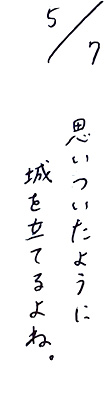 5/7
思いついたように
城を立てるよね。